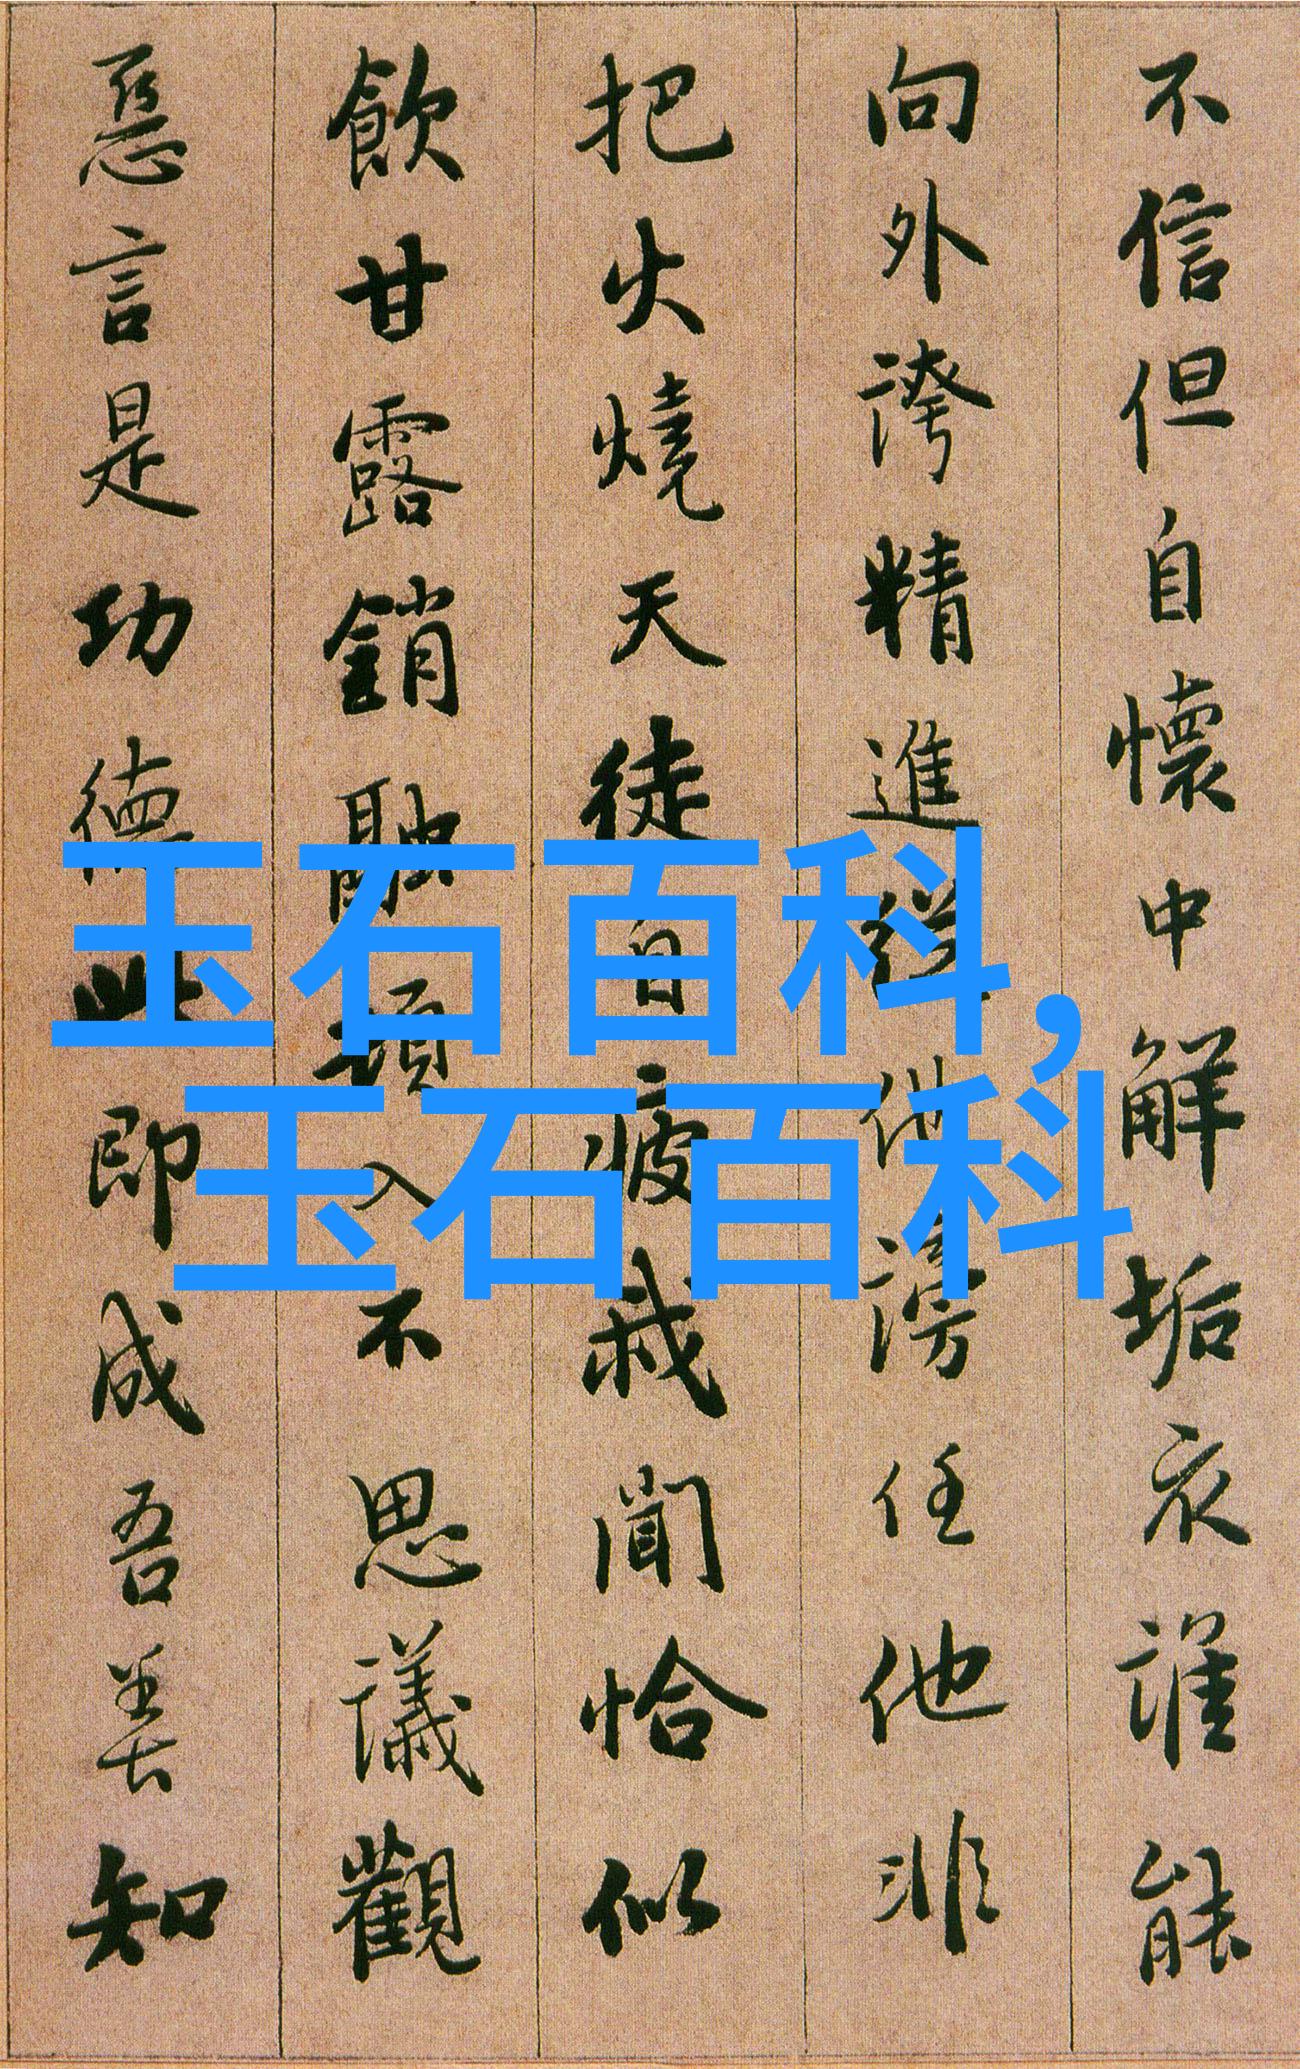 不信但自懷中解垢衣誰能
向外誇精進從他謗任他非
把火燒天徒自疲我聞恰似
飲甘露銷融頓入不思議觀
惡言是功德此即成吾善知
玉石百科,
玉石百科